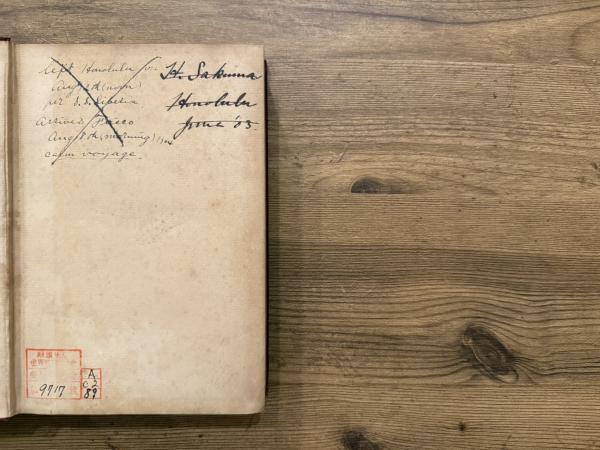 left Honolulu for
Aug (noon)
per S.S. Siberia
Arrived Frisco
Aug 8th (morning) 1904
calm voyage.
H. Sakuma
Honolulu
June '05.
9717
A
C2
89